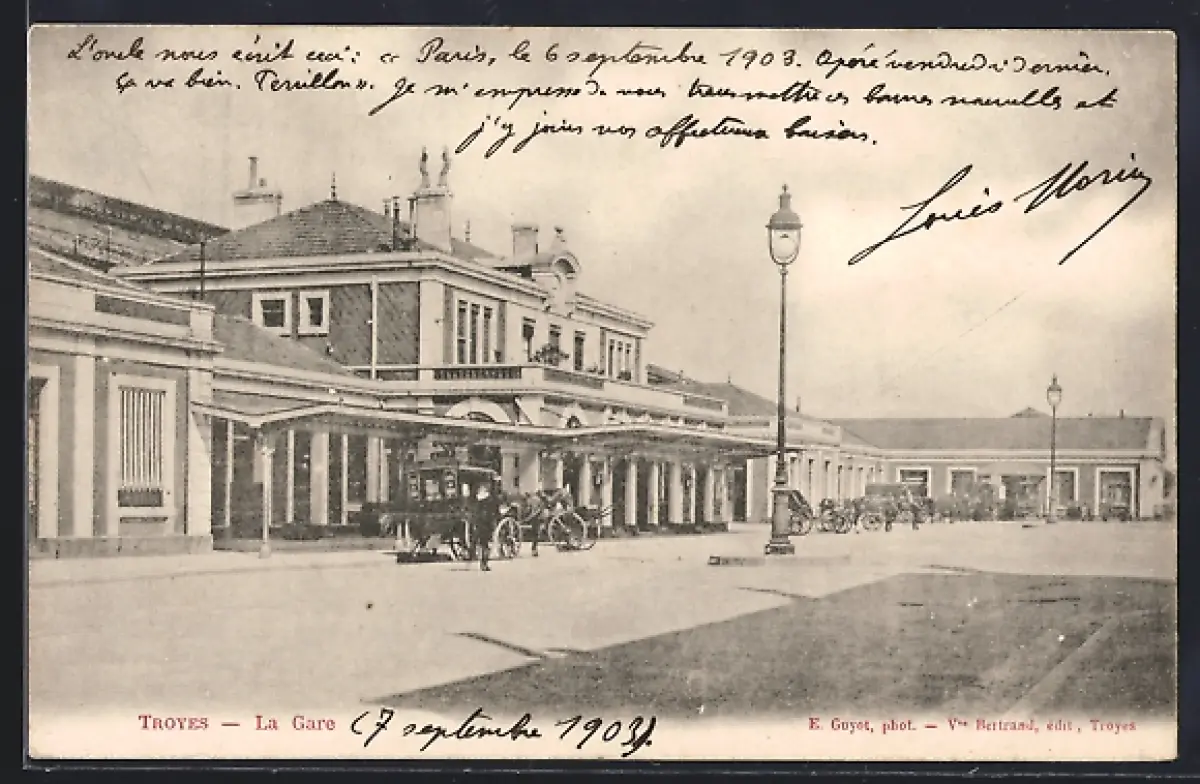 L'oncle nous écrit ceci: « Paris, le 6 septembre 1903. Opéré vendredi dernier.
Ça va bien. Terillon». Je m'empresse de vous transmettre ces bonnes nouvelles et
j'y joins nos affectueux baisers.
Louis Morin
TROYES — La Gare (7 septembre 1903).
E. Guyot, phot. — Vve Bertrand, édit, Troyes